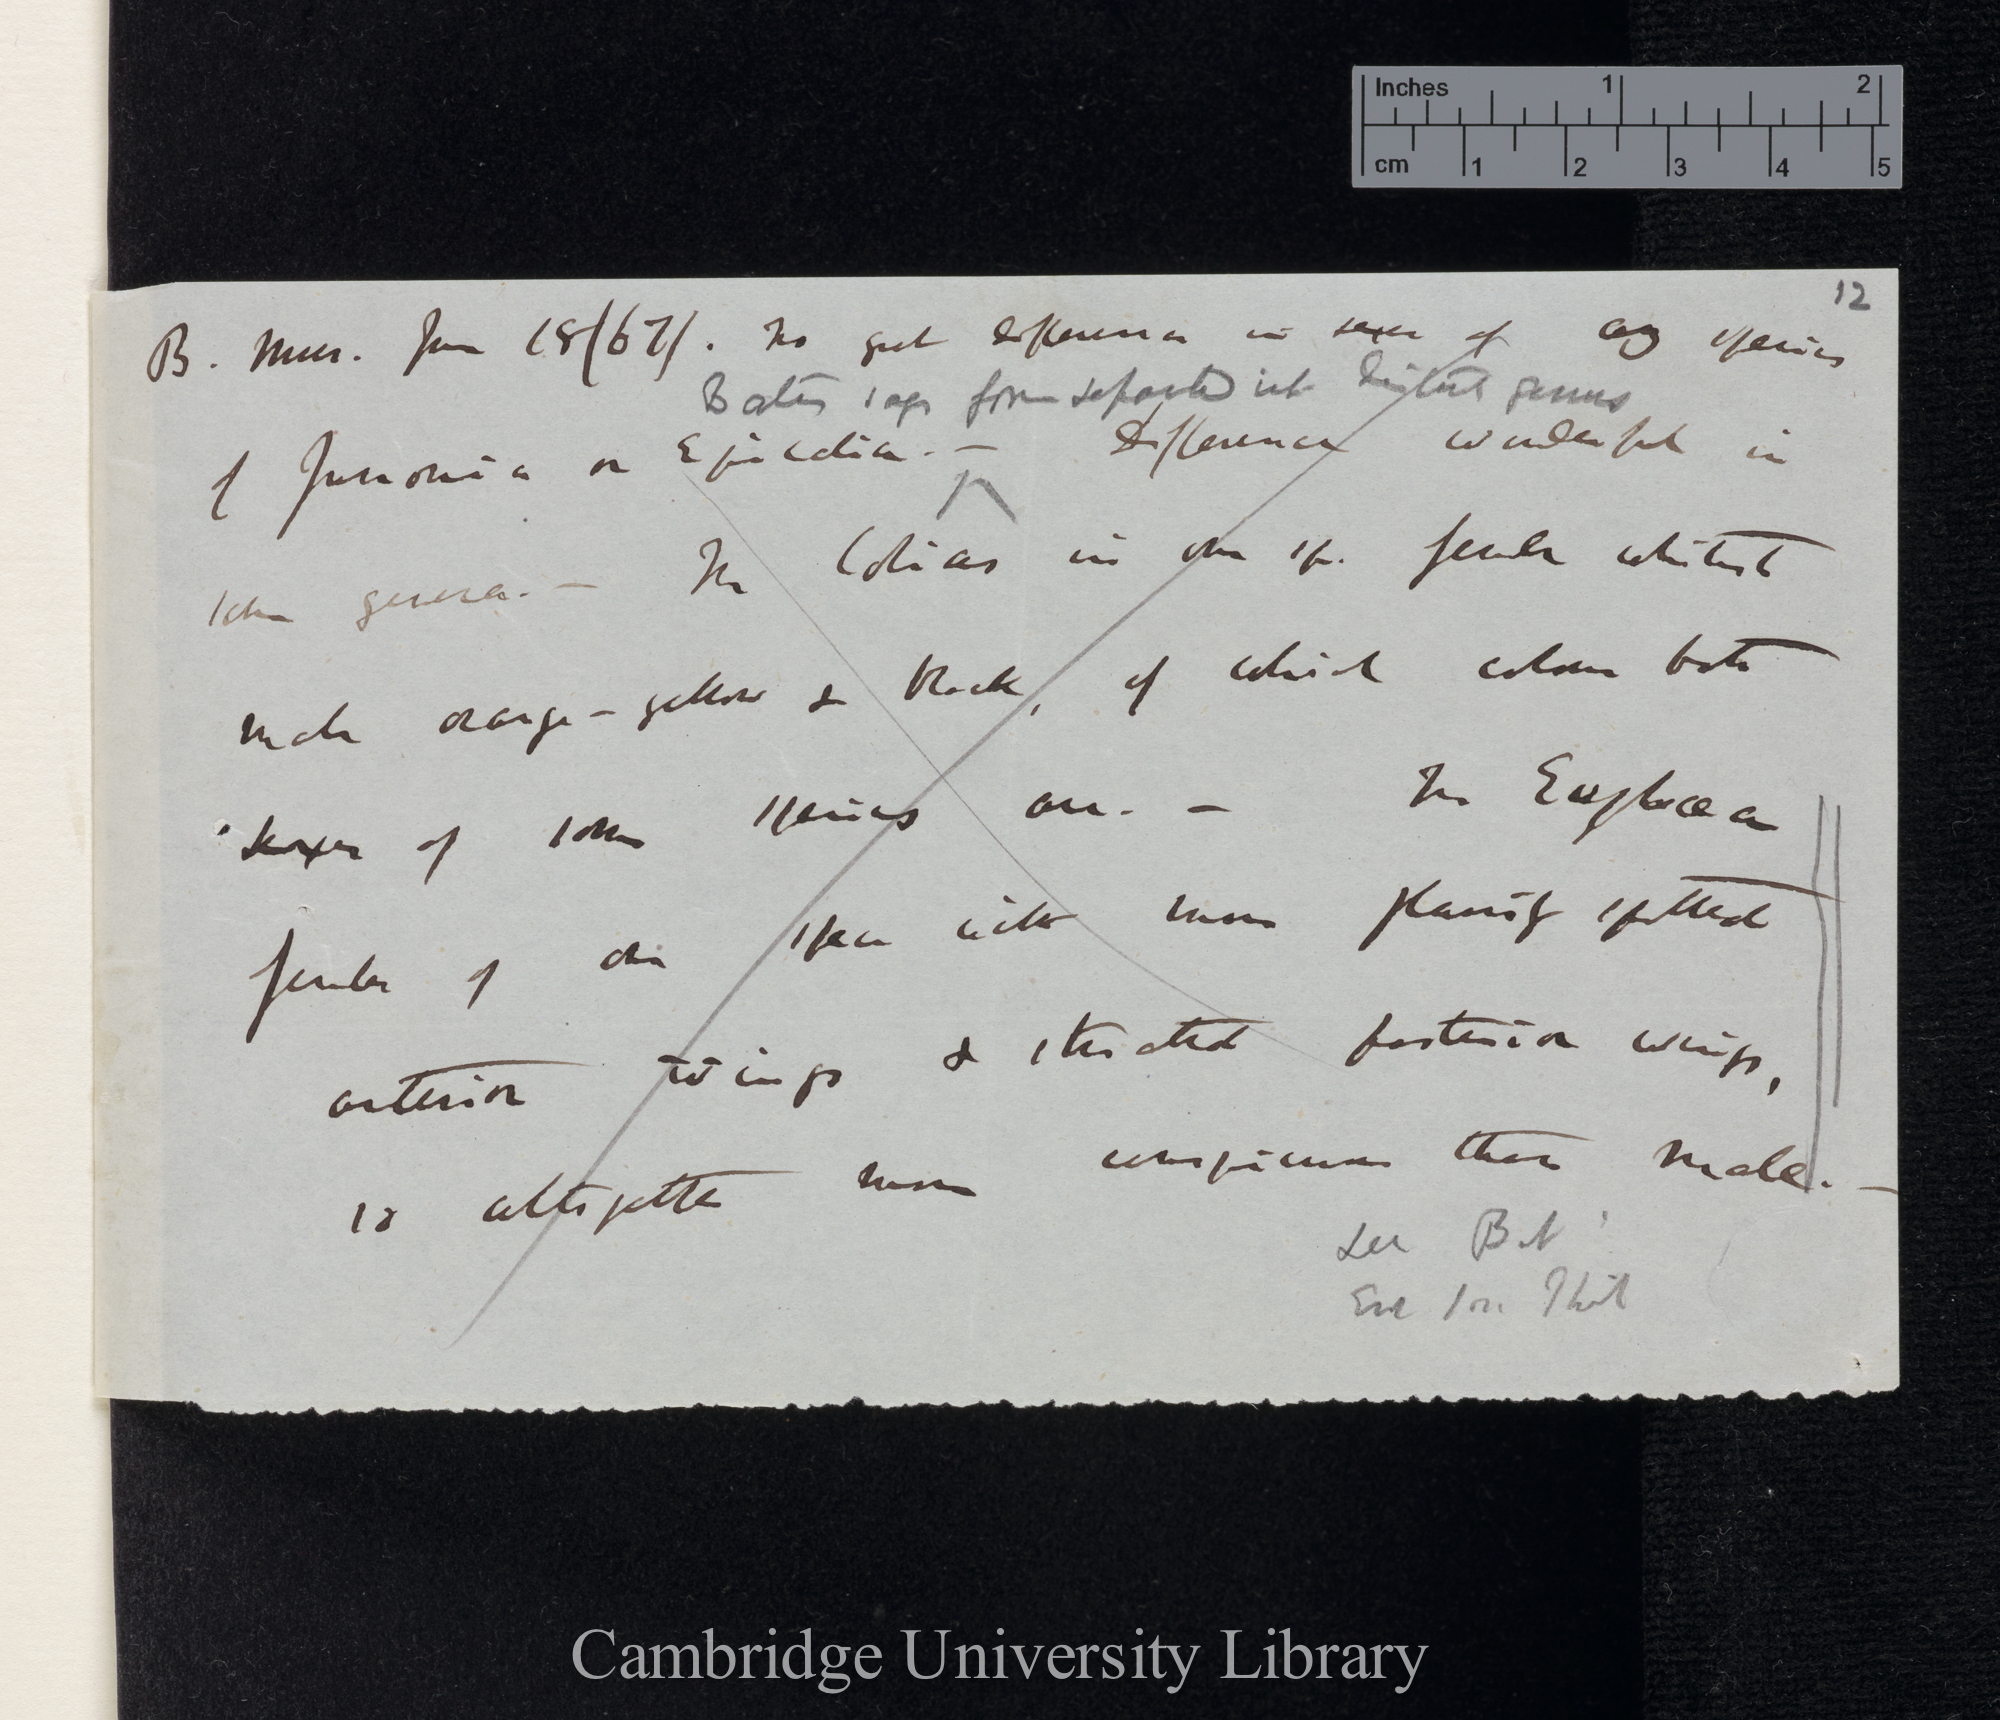 Inches 1 2
cm 1 2 3 4 5
12
B. Mus. Jan 18/67/. No great difference in sexes of any species
Bates says form separated into distinct genus
of Junonia or Epicalia. — Difference wonderful in
some genera. — In Colias in one sp. female whitest
male orange-yellow & black, of which colour both
sexes of some species are. — In Euploea a
female of one species with more plainly spotted
anterior wings & striated posterior wings,
is altogether more conspicuous than male. —
see Bat
Ent Soc
Cambridge University Library